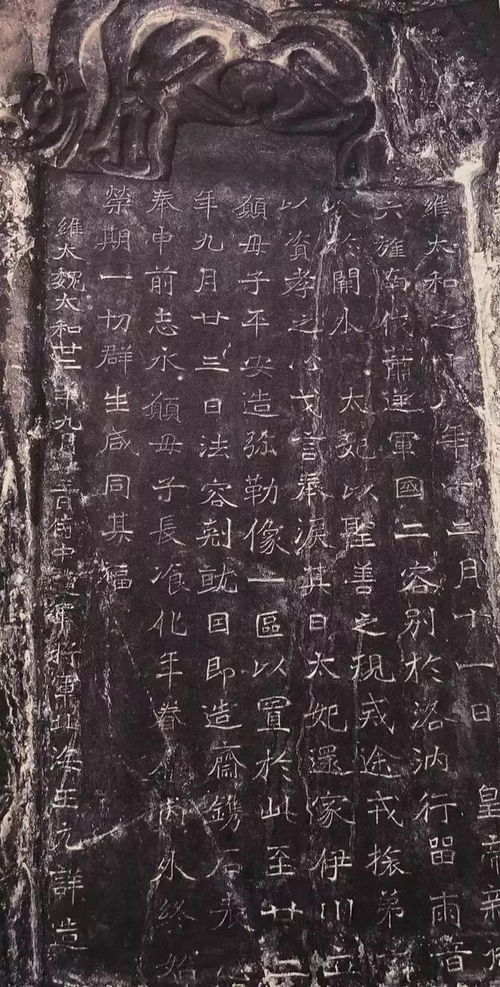 維太和之十八年十二月十一日皇帝親御
六旌南伐蕭逆軍國二容別於洛汭行留兩音
於閫外太妃以聖善之規戒途戒旅弟
以資孝之心戈言奉淚其日太妃還家伊川立
願母子平安造弥勒像一區以置於此至廿二
年九月廿三日法容剋就因即造齋鐫石表心
奉申前志永願母子長飡化年眷屬內外終始
榮期一切群生咸同其福
維大魏太和廿二年九月廿三日侍中護軍將軍北海王元詳造